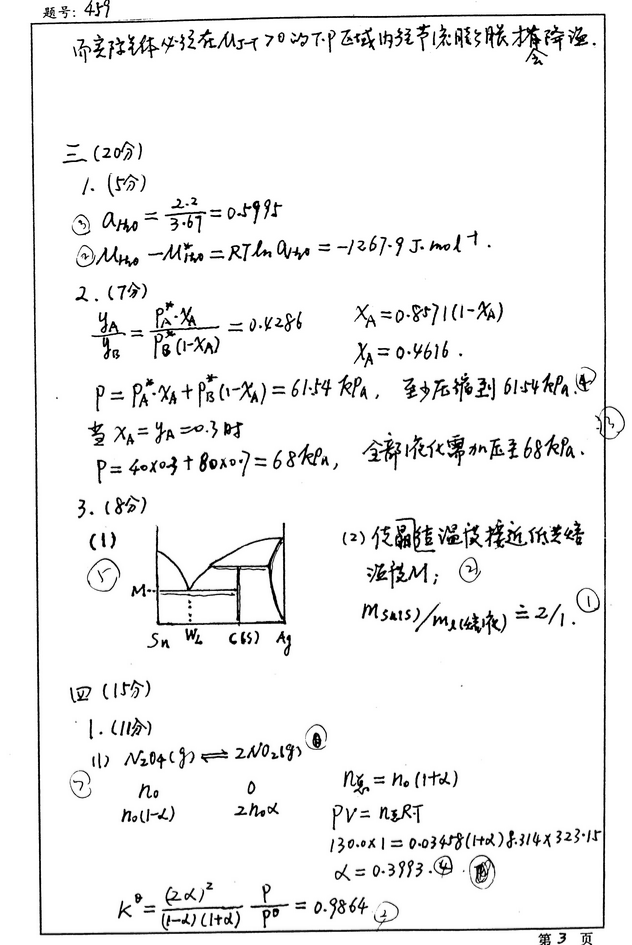 题号: 459
而实际气体必须在 μJ-T > 0 的 T-P 区域内经节流膨胀才会降温.
三 (20分)
1. (5分)
③ aH2O = 2.2/3.67 = 0.5995
② μH2O − μ*H2O = RT ln aH2O = −1267.9 J·mol⁻¹.
2. (7分)
yA/yB = P*A·xA / P*B(1-xA) = 0.4286    xA = 0.8571(1-xA)
xA = 0.4616.
P = P*A·xA + P*B(1-xA) = 61.54 kPa, 至少压缩到 61.54 kPa. ④
当 xA = yA = 0.3 时    ③
P = 40×0.3 + 80×0.7 = 68 kPa, 全部液化需加压至 68 kPa.
3. (8分)
(1)    (2) 使晶体温度接近低共熔
⑤    温度M; ②
M    mSn(s)/ml(熔液) ≐ 2/1. ①
Sn    WL    C(s)    Ag
四 (15分)
1. (11分)
(1) N2O4(g) ⇌ 2NO2(g)
⑦    n0    0    n总 = n0(1+α)
n0(1-α)    2n0α    PV = n总RT
130.0×1 = 0.03458(1+α) 8.314×323.15
α = 0.3993. ④
K^θ = (2α)²/(1-α)(1+α) P/P^θ = 0.9864 ②
第 3 页